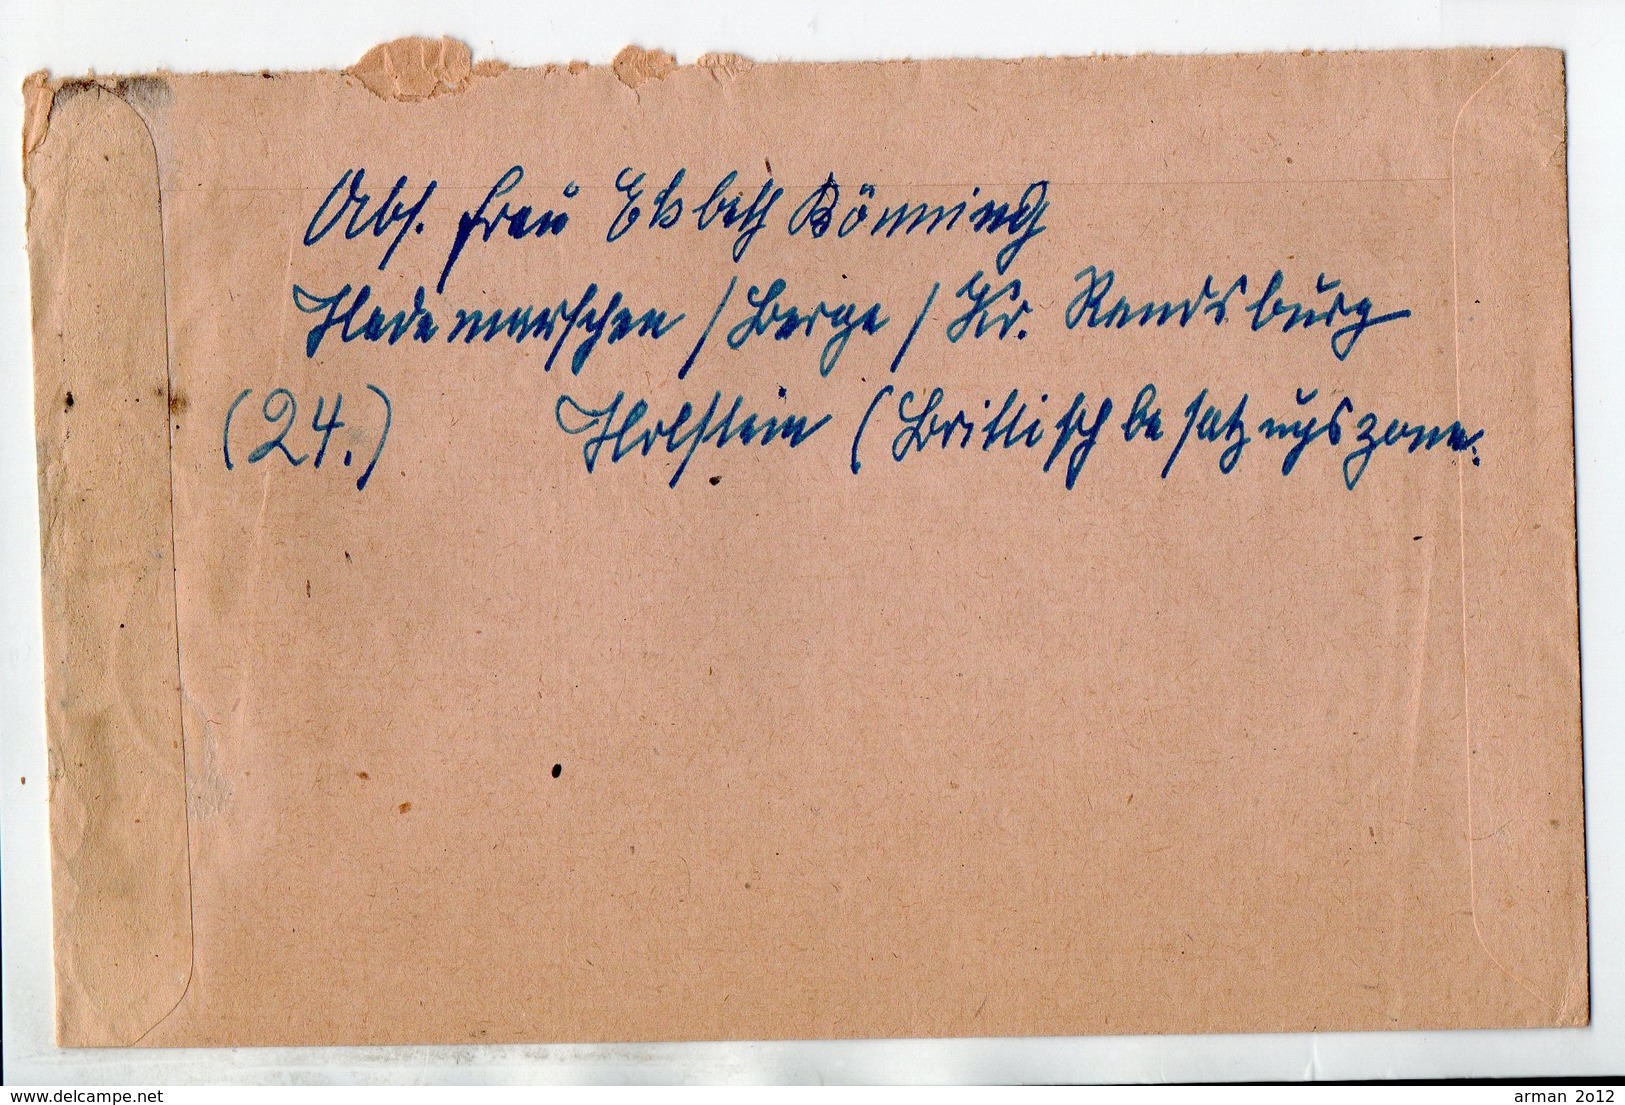 Abs. Frau Elsbeth Bönning
Hademarschen / Berge / Kr. Rendsburg
(24.) Holstein (Brittischbesatzungszone.
delcampe.net
arman 2012